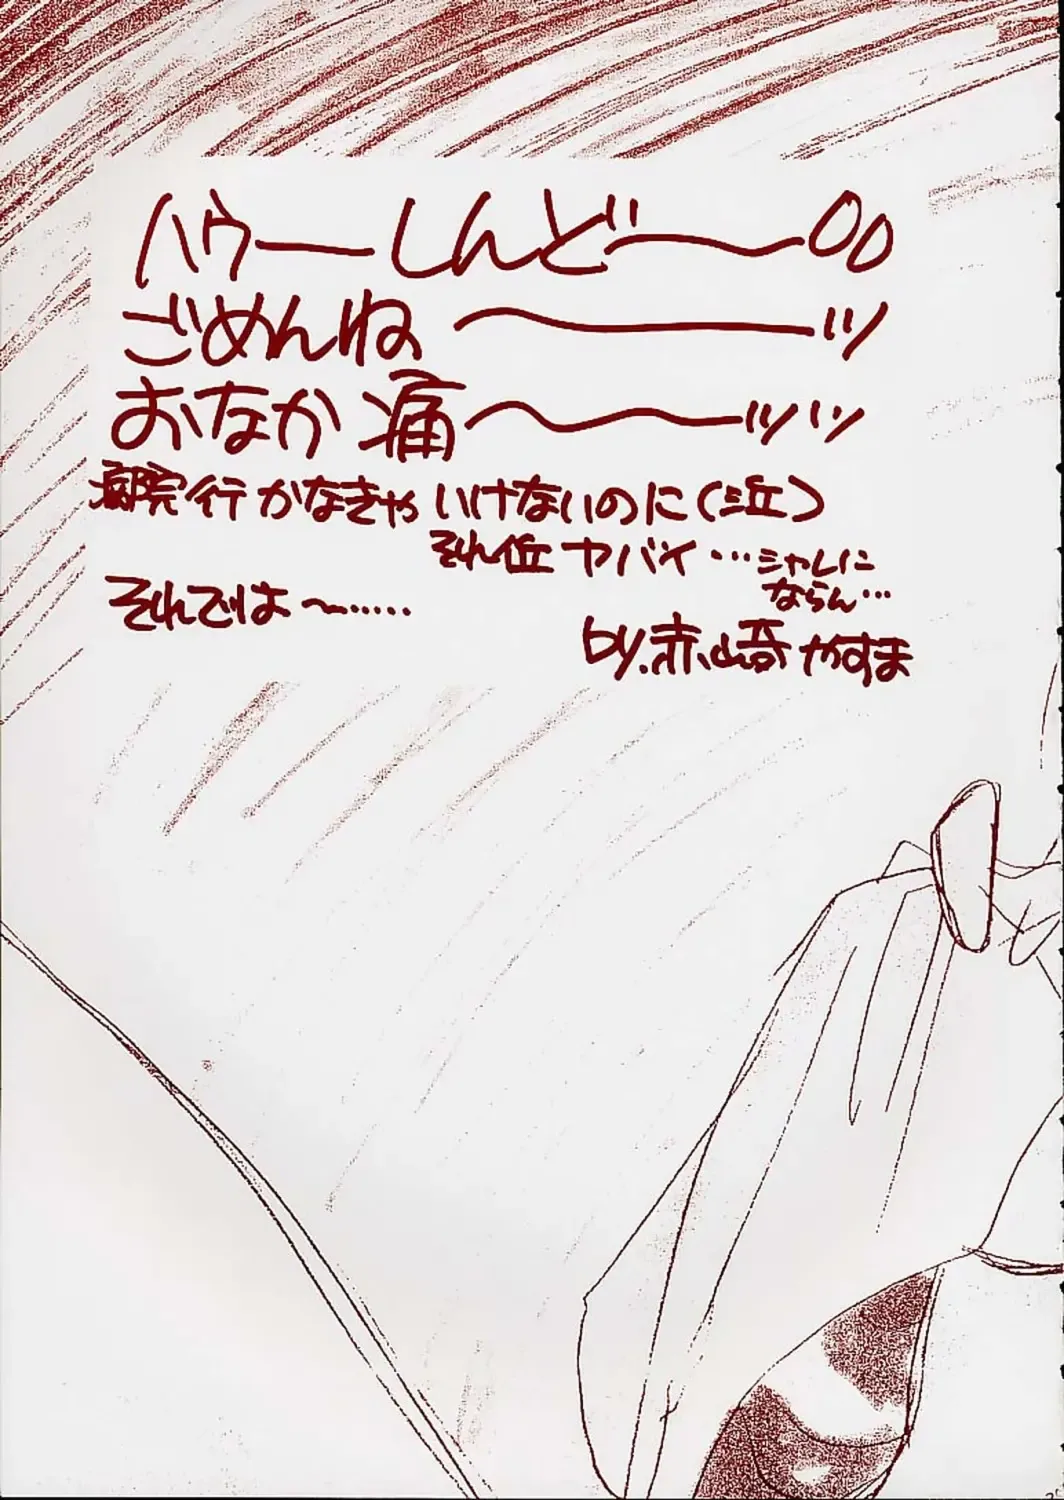 ハゥーしんどーー〇〇
ごめんね〜ーッ
おなか痛〜〜ーッッッ
病院行かなきゃいけないのに(泣)
それ位ヤバイ…シャレに
ならん…
それでは〜……
by.赤崎やすま